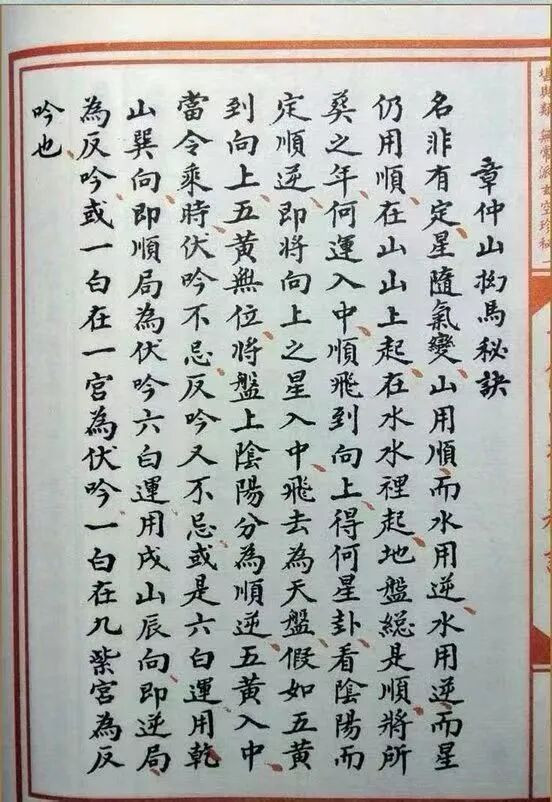 堪輿類 無常派玄空珍秘
章仲山挨馬秘訣
名非有定星隨氣變山用順而水用逆水用逆而星
仍用順在山山上起在水水裡起地盤總是順將所
葬之年何運入中順飛到向上得何星卦看陰陽而
定順逆即將向上之星入中飛去為天盤假如五黃
到向上五黃無位將盤上陰陽分為順逆五黃入中
當令乘時伏吟不忌反吟又不忌或是六白運用乾
山巽向即順局為伏吟六白運用戌山辰向即逆局
為反吟或一白在一宮為伏吟一白在九紫宮為反
吟也